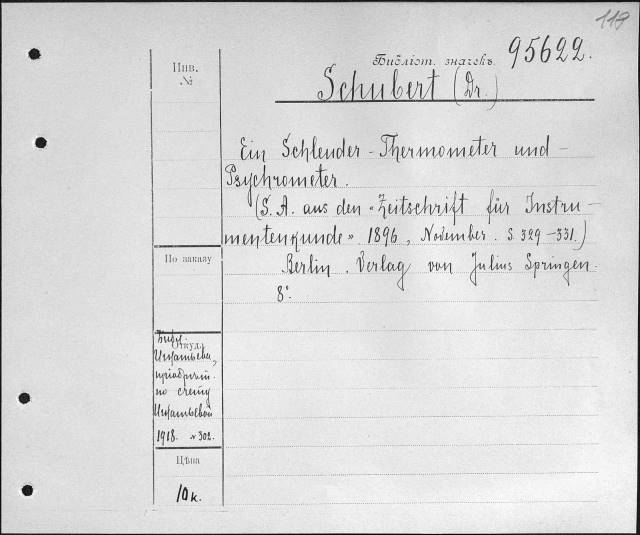 119
Библіот. значекъ 95622.
Инв.
№
Schubert (Dr.)
Ein Schleuder-Thermometer und
Psychrometer.
(S. A. aus den "Zeitschrift für Instru-
mentenkunde". 1896, November. S. 329-331.)
По заказу
Berlin. Verlag von Julius Springen.
8°.
Откуд.
Библ.
Игнатьева,
пріобрѣт.
по счету
Игнатьевой
1918. № 302.
Цѣна
10 к.